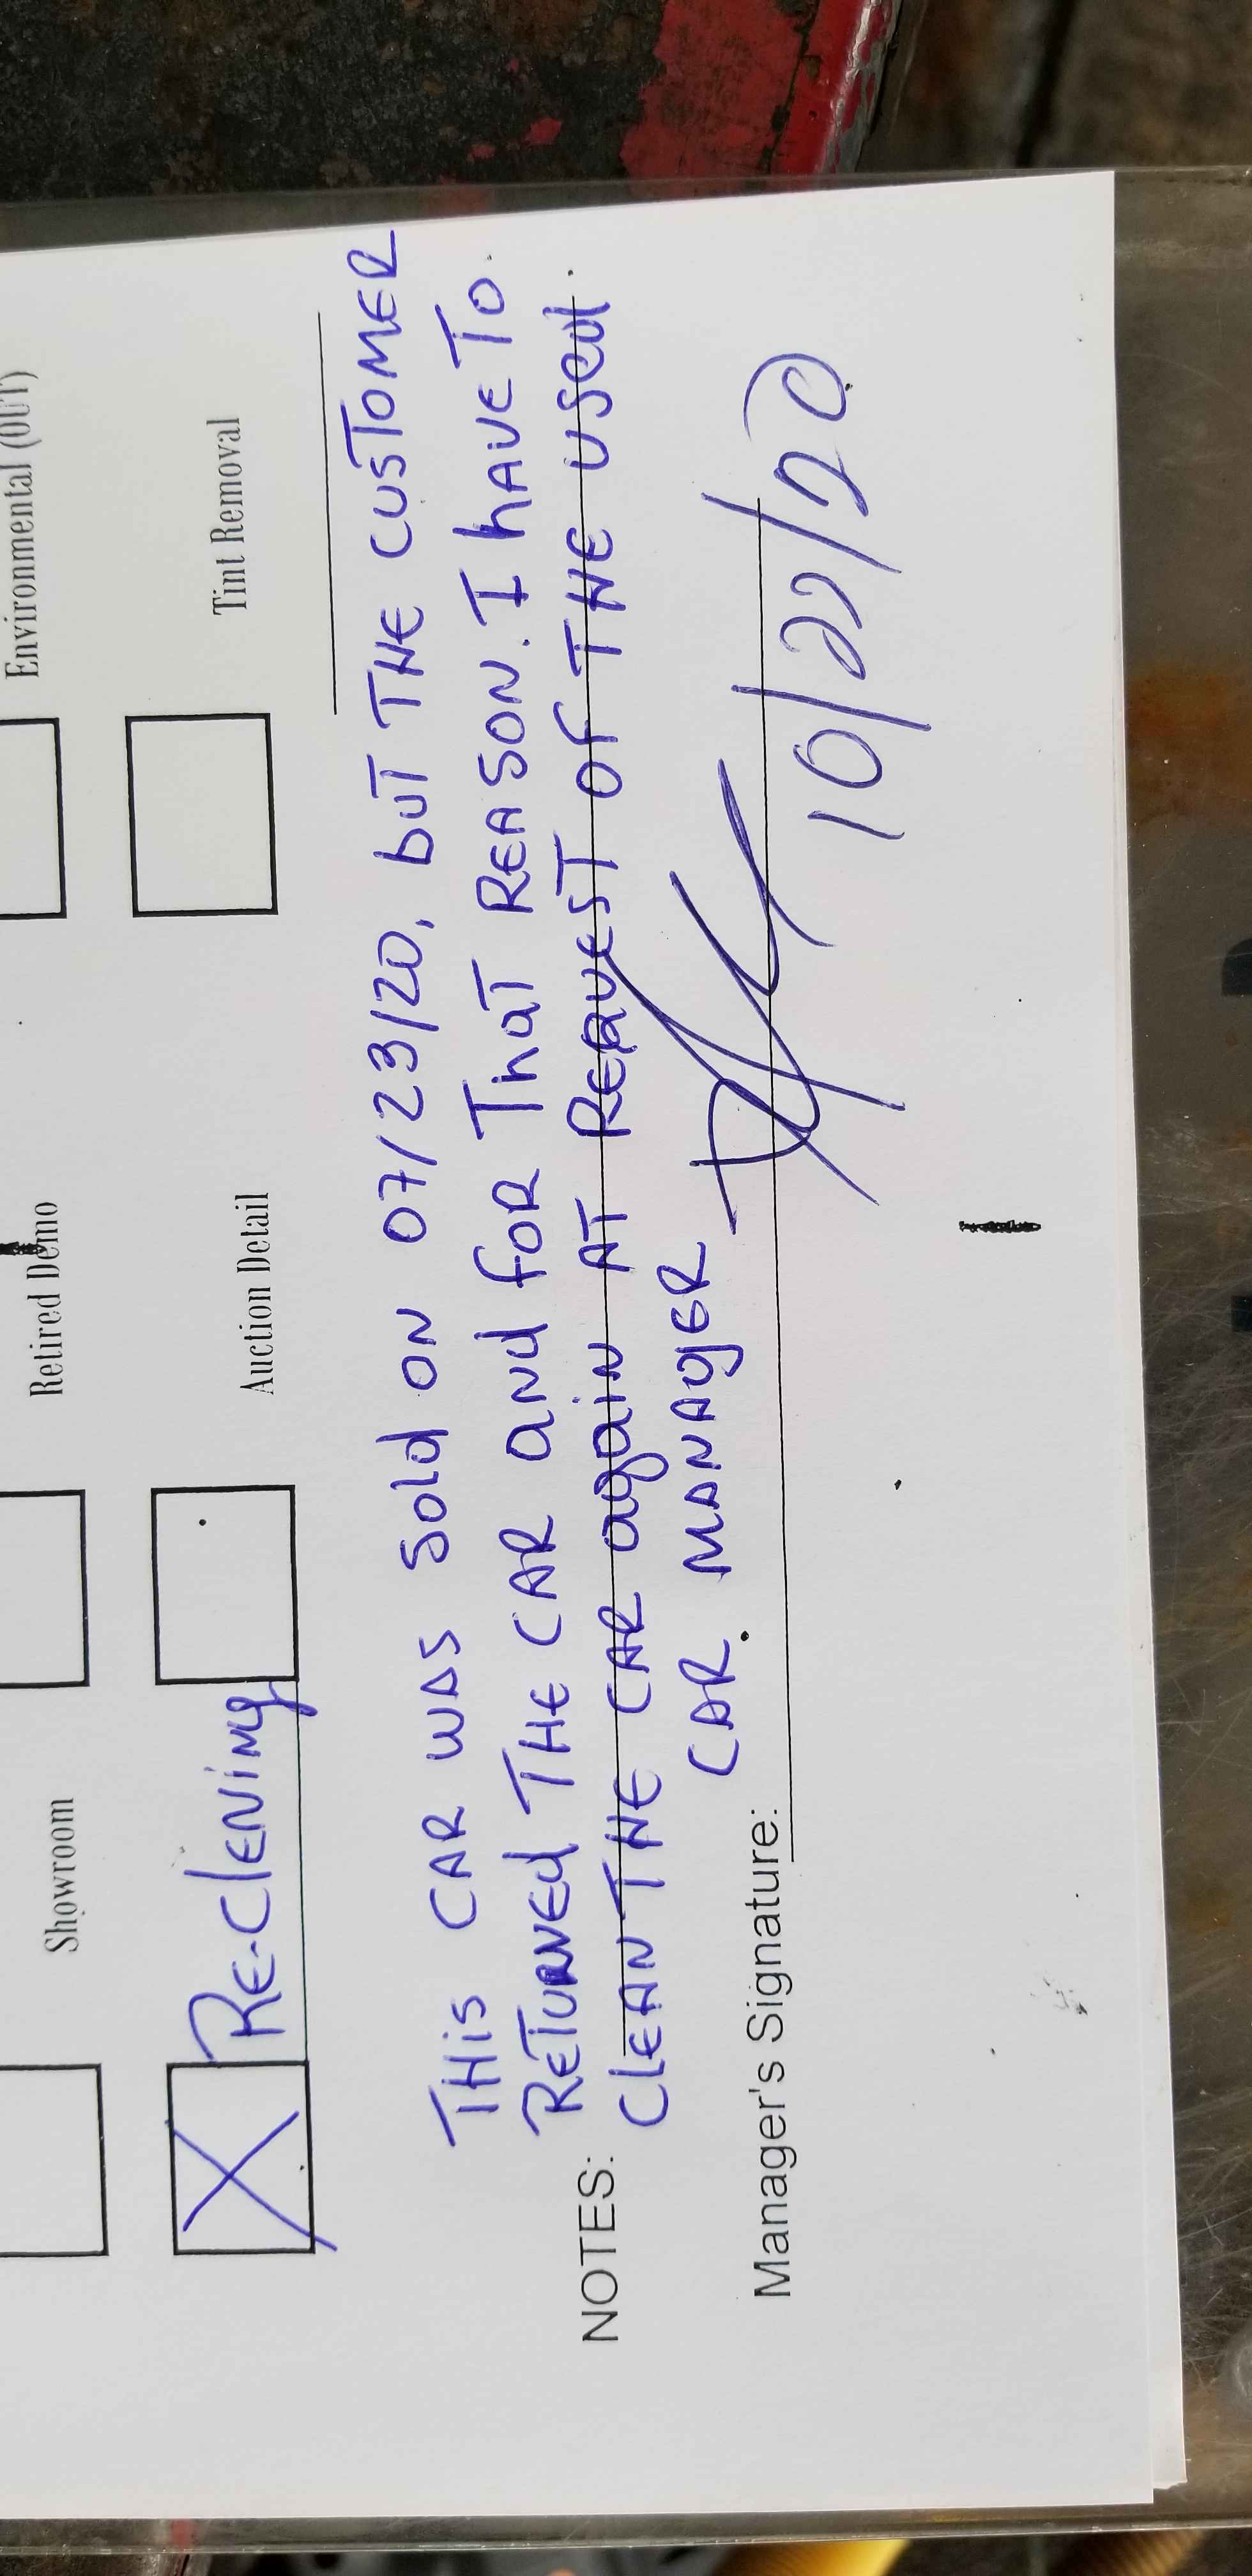 Environmental (OUT)
Retired Demo
Showroom
Tint Removal
Auction Detail
RE-ClENiNg
THiS CAR WAS Sold ON 07/23/20, buT THE CUSTOMER
RETURNEd THE CAR aNd fOR ThaT REASON. I hAVE TO.
NOTES: ClEAN THE CAR agaiN AT REQUEST Of THE USEd.
CAR MANAgER
Manager's Signature:
10/22/20